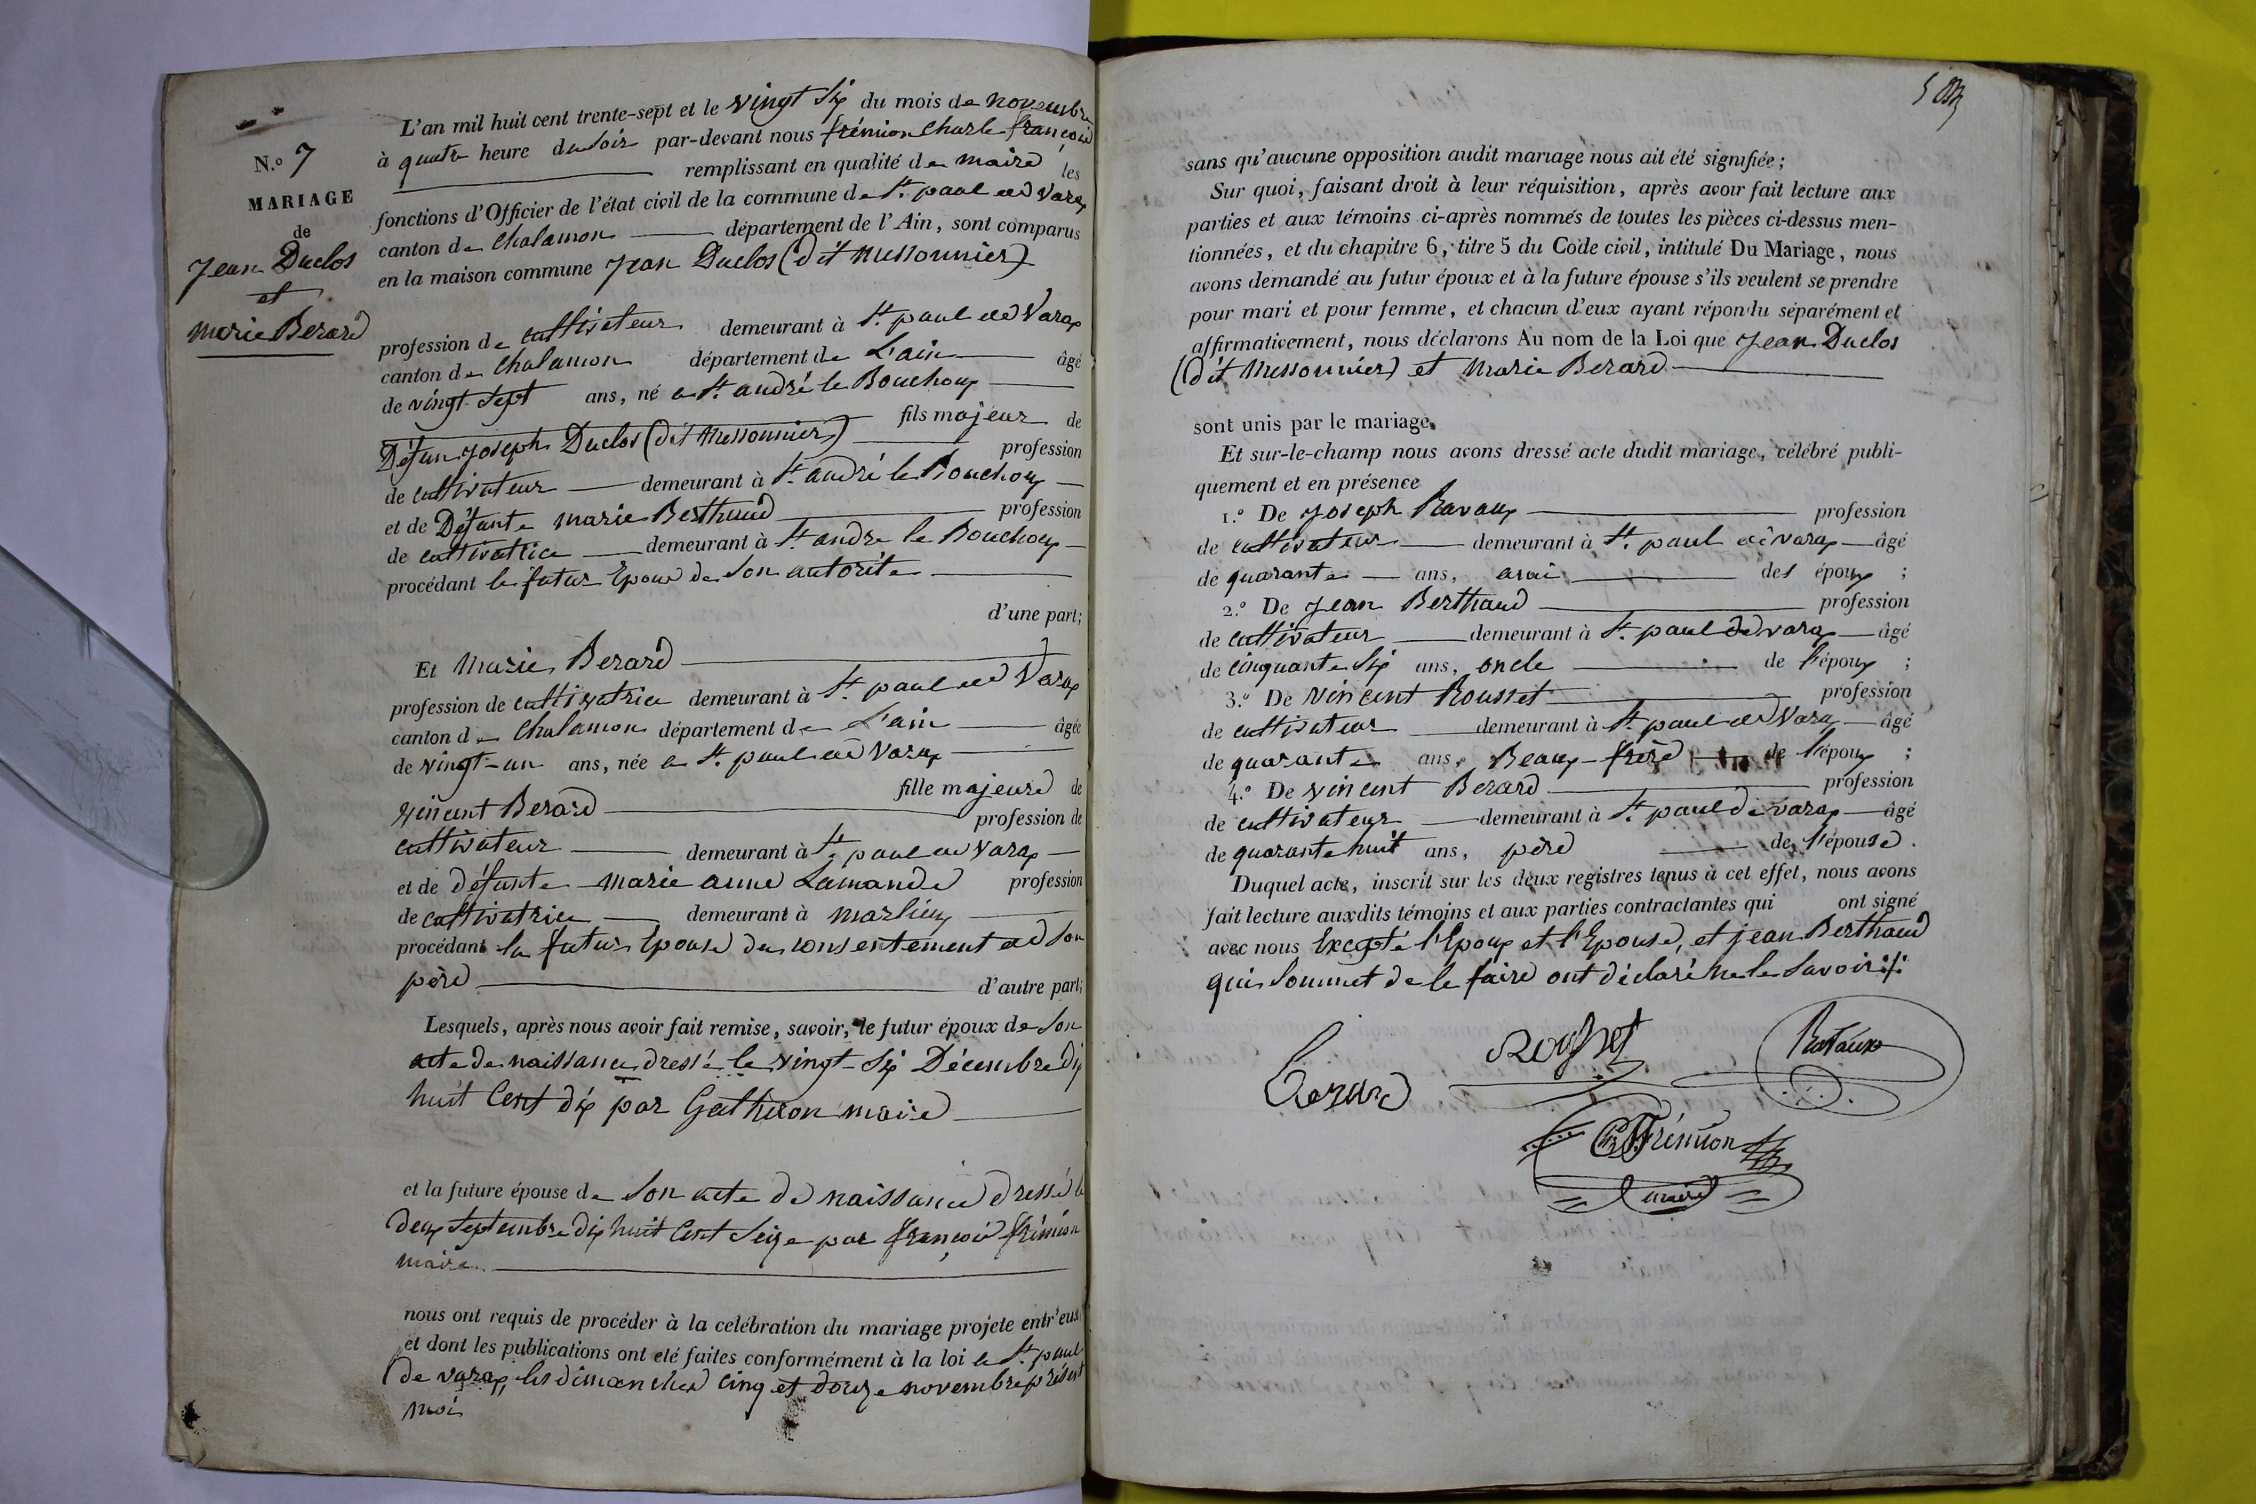 N.º 7
MARIAGE
de
Jean Duclos
et
Marie Berard
L'an mil huit cent trente-sept et le vingt Six du mois de novembre
à quatre heure du Soir par-devant nous frémion Charle françois
remplissant en qualité de maire les
fonctions d'Officier de l'état civil de la commune de St. paul de Varax
canton de Chalamon département de l'Ain, sont comparus
en la maison commune Jean Duclos (dit Missonnier)
profession de cultivateur demeurant à St. paul de Varax
canton de Chalamon département de L'ain âgé
de vingt Sept ans, né a St. andré le Bouchoux
fils majeur de
Défun Joseph Duclos (dit Missonnier) profession
de cultivateur demeurant à St. andré le Bouchoux
et de Défunte Marie Berthaud profession
de cultivatrice demeurant à St. andre le Bouchoux
procédant le futur Epoux de Son autorité
d'une part;
Et Marie Berard
profession de cultivatrice demeurant à St. paul de Varax
canton de Chalamon département de L'ain âgée
de vingt-un ans, née a St. paul de Varax
fille majeure de
Vincent Berard profession de
cultivateur demeurant à St. paul de Varax
et de défunte marie anne Lamande profession
de cultivatrice demeurant à marlieux
procédant la futur Epouse du consentement de Son
père d'autre part;
Lesquels, après nous avoir fait remise, savoir, le futur époux de Son
acte de naissance dressé le vingt-Six Décembre dix
huit Cent dix par Gatheron maire
et la future épouse de Son acte de naissance dressé le
deux Septembre dix huit Cent Seize par françois frémion
maire
nous ont requis de procéder à la celébration du mariage projete entr'eux
et dont les publications ont été faites conformément à la loi a St. paul
de varax, les dimanches cinq et douze novembre présent
mois
sans qu'aucune opposition audit mariage nous ait été signifiée;
Sur quoi, faisant droit à leur réquisition, après avoir fait lecture aux
parties et aux témoins ci-après nommés de toutes les pièces ci-dessus men-
tionnées, et du chapitre 6, titre 5 du Code civil, intitulé Du Mariage, nous
avons demandé au futur époux et à la future épouse s'ils veulent se prendre
pour mari et pour femme, et chacun d'eux ayant répondu séparément et
affirmativement, nous déclarons Au nom de la Loi que Jean Duclos
(dit Missonnier) et Marie Berard
sont unis par le mariage.
Et sur-le-champ nous avons dressé acte dudit mariage, célébré publi-
quement et en présence
1.º De Joseph Ravaux profession
de cultivateur demeurant à St. paul de varax âgé
de quarante ans, des époux ;
2.º De Jean Berthaud profession
de cultivateur demeurant à St. paul de varax âgé
de cinquante Six ans, oncle de l'époux ;
3.º De Vincent Rousset profession
de cultivateur demeurant à St. paul de Varax âgé
de quarante ans, Beaux-frère de l'époux ;
4.º De Vincent Berard profession
de cultivateur demeurant à St. paul de varax âgé
de quarante huit ans, père de l'épouse.
Duquel acte, inscrit sur les deux registres tenus à cet effet, nous avons
fait lecture auxdits témoins et aux parties contractantes qui ont signé
avec nous Excepté l'Epoux et l'Epouse, et jean Berthaud
qui Sommet de le faire ont déclaré ne le Savoir
Berard Rousset Ravaux
Frémion
maire